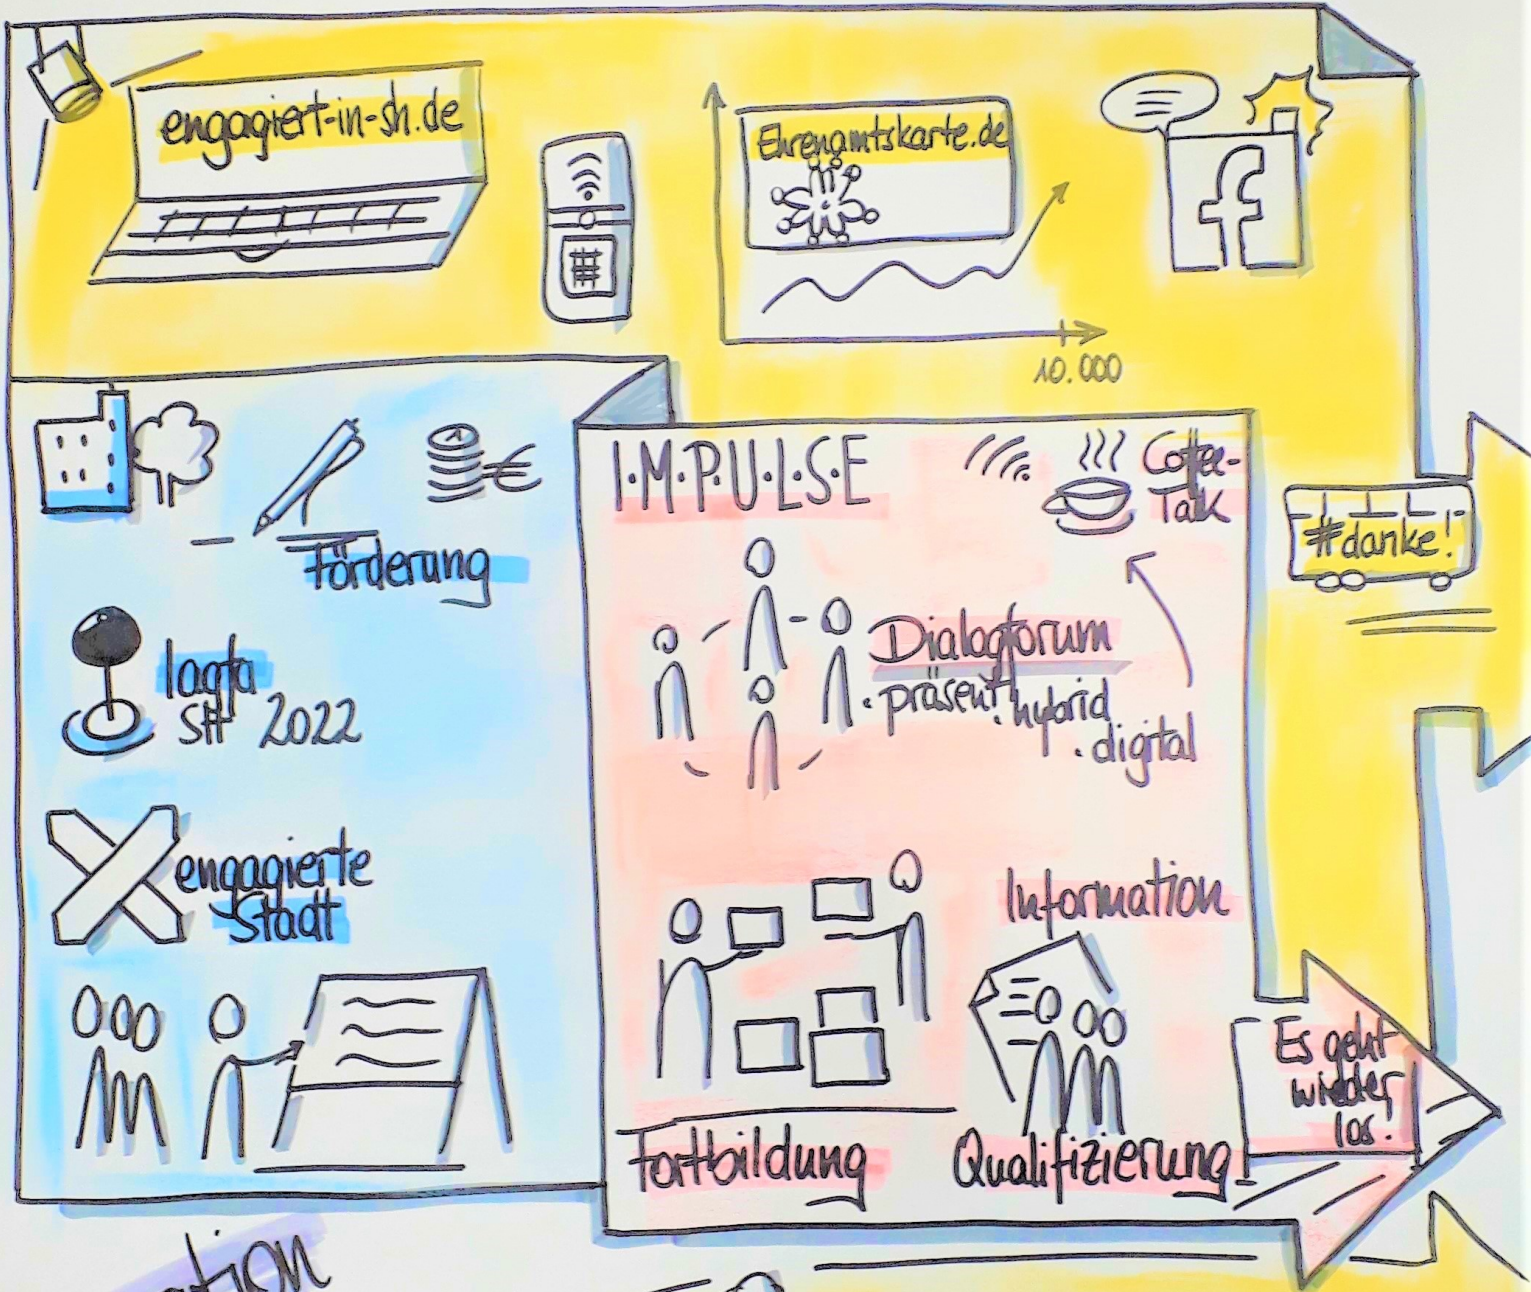 engagiert-in-sh.de
Ehrenamtskarte.de
f
10.000
€
Förderung
lagfa
SH 2022
engagierte
Stadt
I.M.P.U.L.S.E
Coffee-
Talk
Dialogforum
. präsent
. hybrid
. digital
Information
Fortbildung
Qualifizierung
#danke!
Es geht
wieder
los.